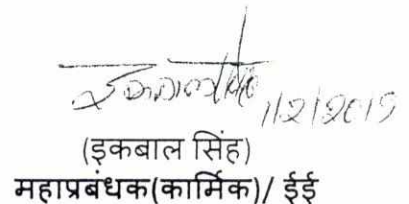 इकबाल सिंह 1/2/2019
(इकबाल सिंह)
महाप्रबंधक(कार्मिक)/ ईई